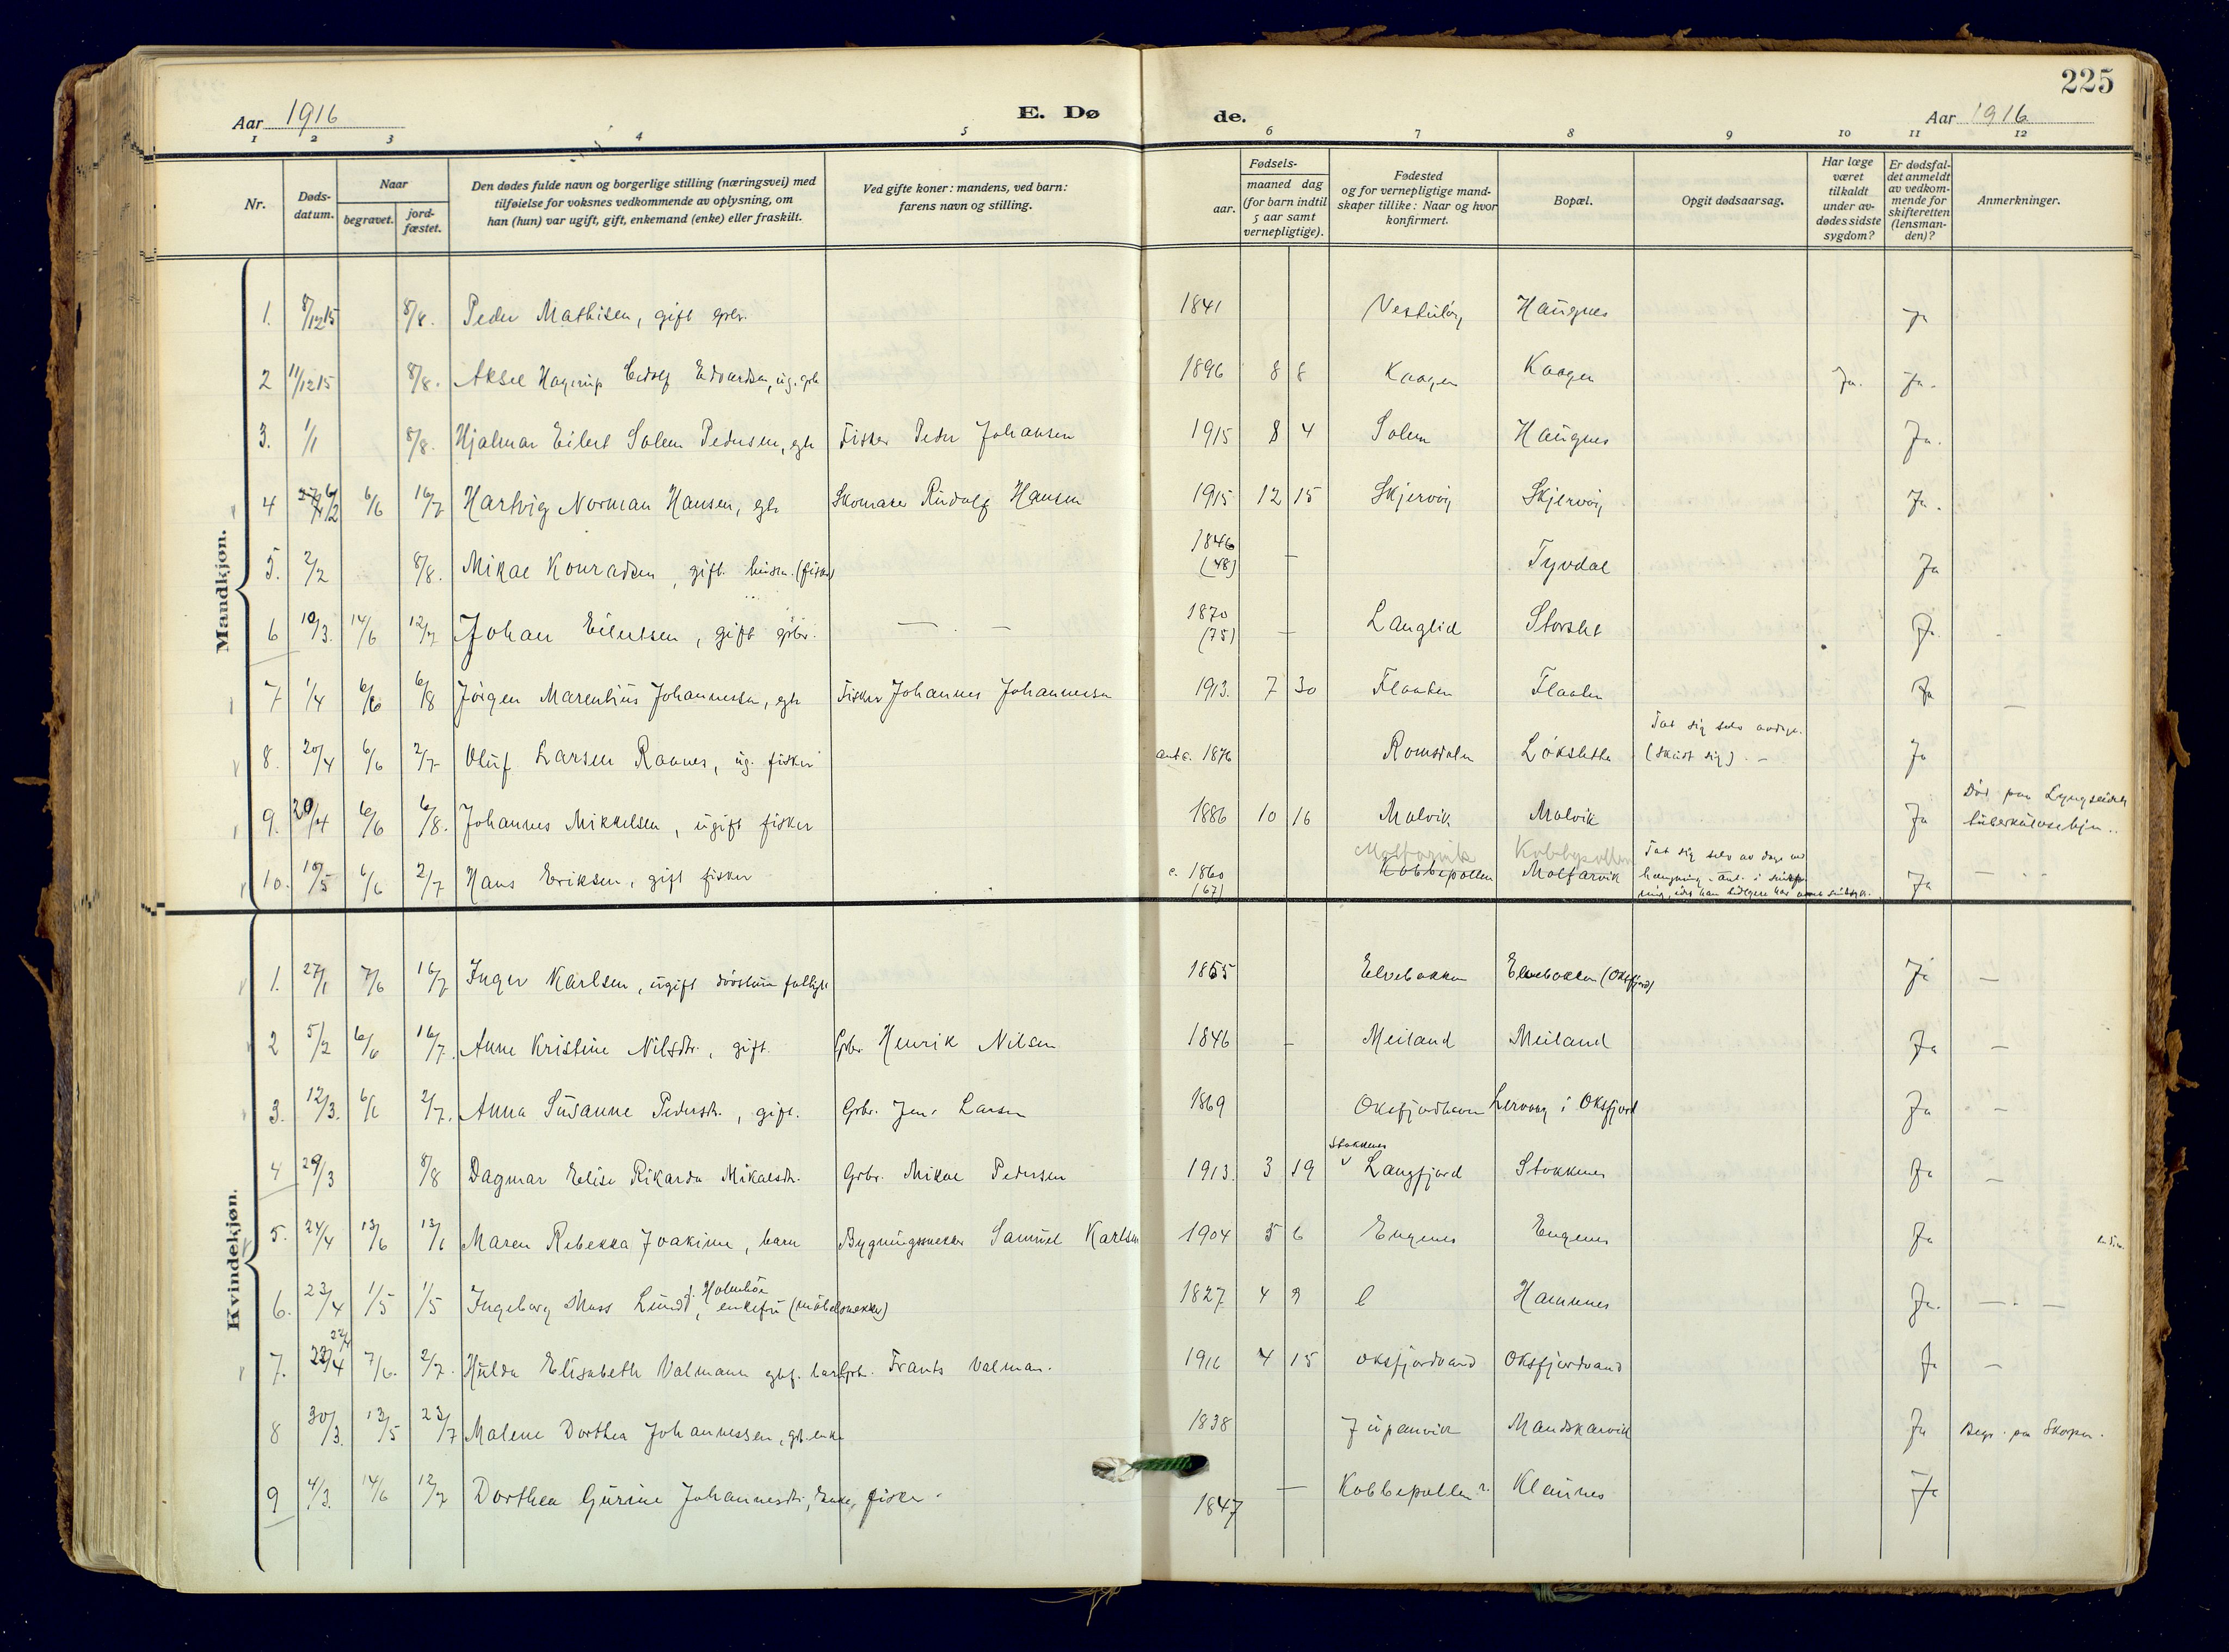 225
Aar 1916 E. Dø de. Aar 1916
1 2 3 4 5 6 7 8 9 10 11 12
Nr.
Døds-
datum.
Naar
begravet.
jord-
fæstet.
Den dødes fulde navn og borgerlige stilling (næringsvei) med
tilføielse for voksnes vedkommende av oplysning, om
han (hun) var ugift, gift, enkemand (enke) eller fraskilt.
Ved gifte koner: mandens, ved barn:
farens navn og stilling.
Fødsels-
aar.
maaned dag
(for barn indtil
5 aar samt
vernepligtige).
Fødested
og for vernepligtige mand-
skaper tillike: Naar og hvor
konfirmert.
Bopæl.
Opgit dødsaarsag.
Har læge
været
tilkaldt
under av-
dødes sidste
sygdom?
Er dødsfal-
det anmeldt
av vedkom-
mende for
skifteretten
(lensman-
den)?
Anmerkninger.
Mandkjøn.
1. 8/12 15 8/8. Peder Mathisen, gift grbr. 1841 Haugnes Ja
2 11/12 15 8/8. Aksel Hagerup Edvardsen, ug. 1896 8 8 Kaagen Kaagen Ja. Ja.
3. 1/1 8/8. Hjalmar Eilert Solem Pedersen, egte Fisker Peder Johansen 1915 8 4 Solem Haugnes Ja.
4 6/2 6/6 16/7 Hartvig Norman Hansen, egte Skomaker Rudolf Hansen 1915 12 15 Skjervøy Skjervøy Ja.
5. 2/2 8/8. Mikal Konradsen, gift. husm. (fisker) 1846 (48) — Tyvdal Ja
6 10/3. 14/6 12/7 Johan Eilertsen, gift grbr. — . — 1870 (75) — Langlid Storslet Ja.
7 1/4 6/6 6/8 Jörgen Marentius Johannessen, egte Fisker Johannes Johannessen 1913. 7 30 Flaaten Flaaten Ja —
8. 20/4 6/6 2/7 Oluf Larsen Rannes, ug. fisker 1876 Romsdalen Løksletta Tat sig selv avdage. (skudt sig) . – Ja
9. 20/4 6/6 6/8. Johannes Mikkelsen, ugift fisker 1886 10 16 Malvik Malvik Ja Död paa Lyngseidet
tuberkulosehjem..
10. 10/5 6/6 2/7 Hans Eriksen, gift fisker c. 1860 (67) Kobbepollen Molfarvik Kobbepollen Tat sig selv av dage ved
hengning Ja —
Kvindekjøn.
1. 27/1 7/6 16/7 Inger Karlsen, ugift dövstum 1855 Elvebakken Elvebakken (Oksfjord) Ja —
2 5/2 6/6 16/7. Anne Kristine Nilsdtr., gift. Grbr. Henrik Nilsen 1846 – Meiland Meiland Ja —
3. 12/3. 6/6 2/7. Anna Susanne Pedersdtr., gift. Grbr. Jens Larsen 1869 Oksfjordhavn Lervaag i Oksfjord Ja –
4 29/3 8/8 Dagmar Elise Rikarda Mikalsdtr. Grbr. Mikal Pedersen 1913. 3 19 Stokkenes Langfjord Stokkenes Ja –
5. 24/4 13/6 13/6 Maren Rebekka Joakime, barn Bygningssnekker Samuel Karlsen 1904 5 6 Eugenes Eugenes Ja
6. 23/4 1/5 1/5 Ingeborg Lund f. Holmboe, enkefru (møbelsnekker) 1827 4 9 Hamnes Ja. — . —
7. 22/4 7/6. 2/7. Hulda Elisabeth Valmann barn Grbr. Frants Valman. 1916 4 15 Oksfjordvand Oksfjordvand Ja —
8 30/3. 13/5 23/7 Malene Dorthea Johannessen, enke 1838 Jupanvik Mandskarvik Ja Begr. paa Skorpen.
9 4/3. 14/6 12/7 Dorthea Gurine Johannesdtr, Enke, fisker. 1847 — Kobbepollen ?. Klaunes Ja